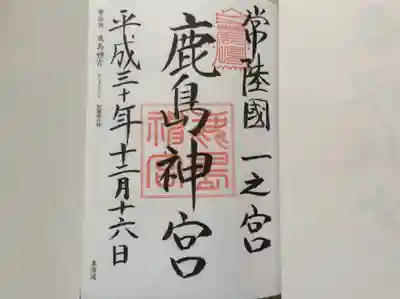 常陸國 一之宮
鹿島神宮
鹿島神宮
平成三十年十二月十六日
鹿島神宮